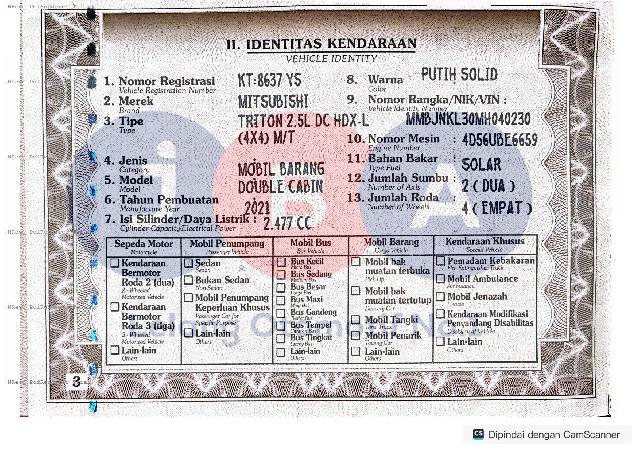 II. IDENTITAS KENDARAAN
VEHICLE IDENTITY
1. Nomor Registrasi KT:8637 YS
Vehicle Registration Number
2. Merek MITSUBISHI
Brand
3. Tipe TRITON 2.5L DC HDX-L
Type (4X4) M/T
4. Jenis MOBIL BARANG
Category
5. Model DOUBLE CABIN
Model
6. Tahun Pembuatan 2021
Manufacture Year
7. Isi Silinder/Daya Listrik : 2.477 CC
Cylinder Capacity/Electrical Power
8. Warna PUTIH SOLID
Color
9. Nomor Rangka/NIK/VIN :
Vehicle Identity Number
MMBJNKL30MH040230
10. Nomor Mesin : 4D56UBE6659
Engine Number
11. Bahan Bakar : SOLAR
Type Fuel
12. Jumlah Sumbu : 2 ( DUA )
Number of Axis
13. Jumlah Roda : 4 ( EMPAT )
Number of Wheels
Sepeda Motor
Motorcycle
Kendaraan
Bermotor
Roda 2 (dua)
2-Wheeled
Motorized Vehicle
Kendaraan
Bermotor
Roda 3 (tiga)
3-Wheeled
Motorized Vehicle
Lain-lain
Others
Mobil Penumpang
Passenger Vehicle
Sedan
Sedan
Bukan Sedan
Non-Sedan
Mobil Penumpang
Keperluan Khusus
Passenger Car for
Lain-lain
Others
Mobil Bus
Bus Vehicle
Bus Kecil
Bus Sedang
Bus Besar
Bus Maxi
Bus Gandeng
Bus Tempel
Bus Tingkat
Lain-lain
Others
Mobil Barang
Cargo Vehicle
Mobil bak
muatan terbuka
Pick Up
Mobil bak
muatan tertutup
Mobil Tangki
Mobil Penarik
Lain-lain
Others
Kendaraan Khusus
Special Vehicle
Pemadam Kebakaran
Fire Extinguisher Truck
Mobil Ambulance
Ambulance
Mobil Jenazah
Hearse
Kendaraan Modifikasi
Penyandang Disabilitas
Lain-lain
Others
3
CS Dipindai dengan CamScanner